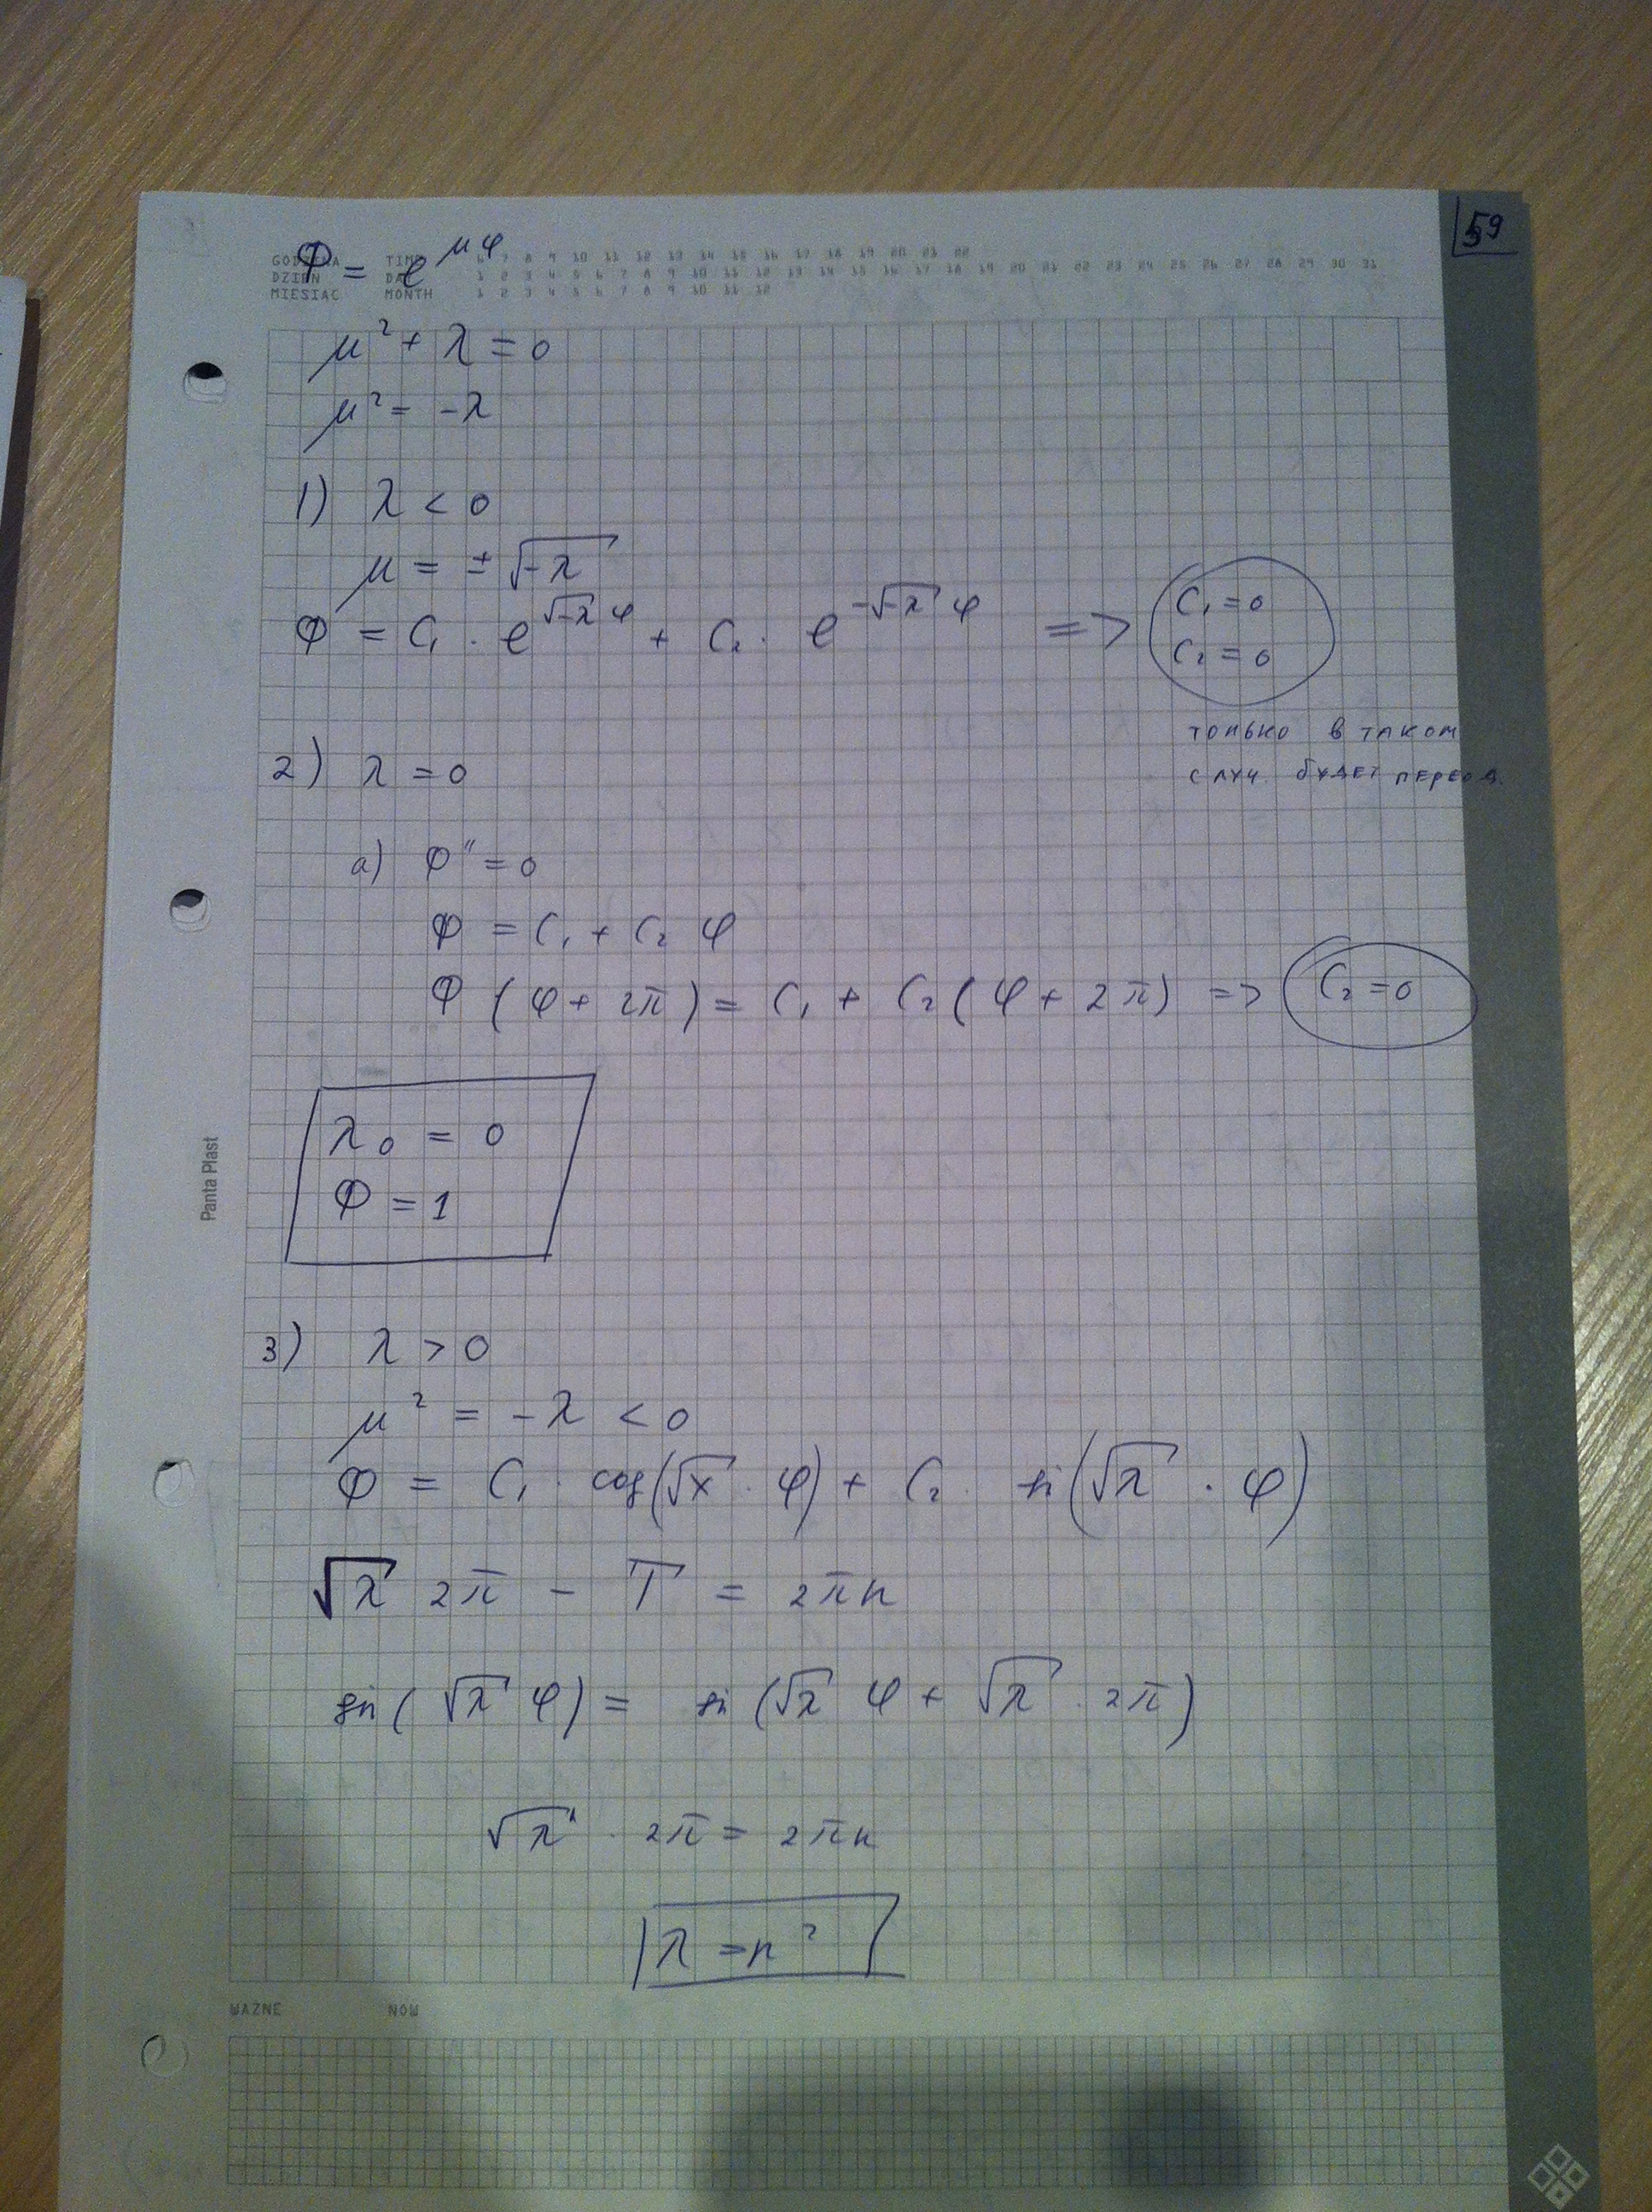 59
Φ = e^{μφ}
GODZINA TIME 6 7 8 9 10 11 12 13 14 15 16 17 18 19 20 21 22
DZIEŃ DAY 1 2 3 4 5 6 7 8 9 10 11 12 13 14 15 16 17 18 19 20 21 22 23 24 25 26 27 28 29 30 31
MIESIĄC MONTH 1 2 3 4 5 6 7 8 9 10 11 12
μ² + λ = 0
μ² = -λ
1) λ < 0
μ = ± √-λ
Φ = C₁ · e^{√-λ φ} + C₂ · e^{-√-λ φ} => C₁ = 0
C₂ = 0
только в таком
случ. будет перeод.
2) λ = 0
a) Φ'' = 0
Φ = C₁ + C₂ φ
Φ (φ + 2π) = C₁ + C₂ (φ + 2π) => C₂ = 0
λ₀ = 0
Φ = 1
Panta Plast
3) λ > 0
μ² = -λ < 0
Φ = C₁ · cos(√λ · φ) + C₂ · sin(√λ · φ)
√λ 2π - T = 2πn
sin(√λ φ) = sin(√λ φ + √λ · 2π)
√λ · 2π = 2πn
λ = n²
WAŻNE NOW